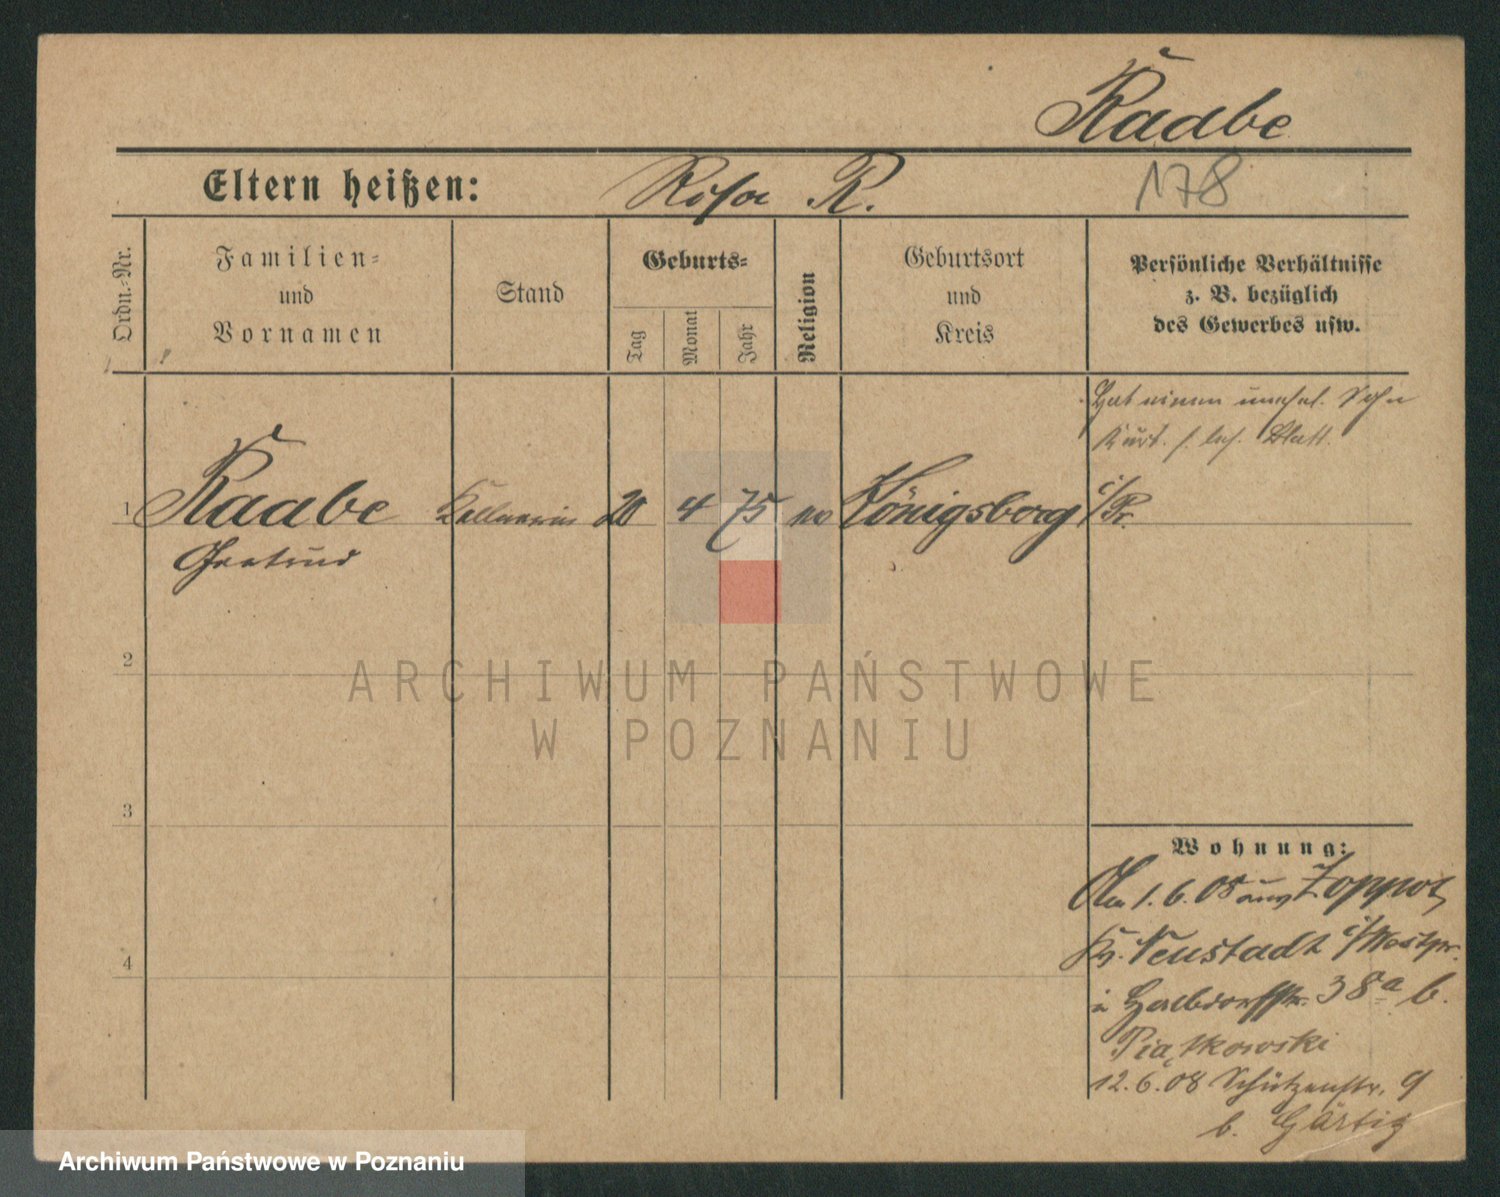 Raabe
Eltern heißen: Rosa R.
178
Ordn.-Nr.
Familien-
und
Vornamen
Stand
Geburts-
Tag
Monat
Jahr
Religion
Geburtsort
und
Kreis
Persönliche Verhältnisse
z. B. bezüglich
des Gewerbes usw.
Hat einen unehel. Sohn
Kurt. s. bes. Blatt.
1 Raabe Kellnerin 20 4 75 ev Königsberg i/Pr.
Gertrud
2
ARCHIWUM PAŃSTWOWE
W POZNANIU
3
Wohnung:
Am 1.6.08 aus Zoppot,
Kr. Neustadt i/Westpr.
4
in Halbdorfstr. 38a b.
Piątkowski
12.6.08 Schützenstr. 9
b. Gärtig
Archiwum Państwowe w Poznaniu